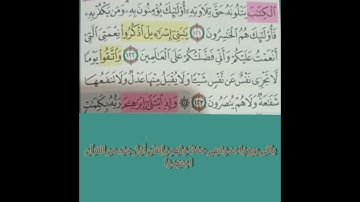 ٱلْكِتَٰبَ يَتْلُونَهُۥ حَقَّ تِلَاوَتِهِۦٓ أُو۟لَٰٓئِكَ يُؤْمِنُونَ بِهِۦ وَمَن يَكْفُرْ بِهِۦ
فَأُو۟لَٰٓئِكَ هُمُ ٱلْخَٰسِرُونَ ١٢١ يَٰبَنِىٓ إِسْرَٰٓءِيلَ ٱذْكُرُوا۟ نِعْمَتِىَ ٱلَّتِىٓ
أَنْعَمْتُ عَلَيْكُمْ وَأَنِّى فَضَّلْتُكُمْ عَلَى ٱلْعَٰلَمِينَ ١٢٢ وَٱتَّقُوا۟ يَوْمًا
لَّا تَجْزِى نَفْسٌ عَن نَّفْسٍ شَيْـًٔا وَلَا يُقْبَلُ مِنْهَا عَدْلٌ وَلَا تَنفَعُهَا
شَفَٰعَةٌ وَلَا هُمْ يُنصَرُونَ ١٢٣ ۞ وَإِذِ ٱبْتَلَىٰٓ إِبْرَٰهِـۧمَ رَبُّهُۥ بِكَلِمَٰتٍ
أول جزء من القرآن